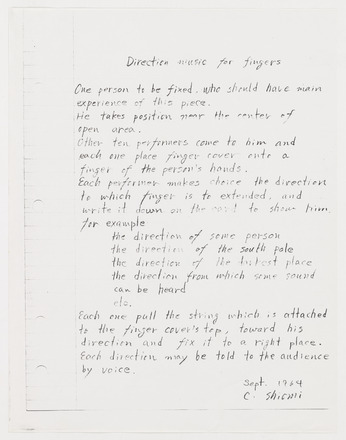 Direction music for fingers
One person to be fixed, who should have main
experience of this piece.
He takes position near the center of
open area.
Other ten performers come to him and
each one place finger cover onto a
finger of the person's hands.
Each performer makes choice the direction
to which finger is to extended, and
write it down on the card to show him.
for example
the direction of some person
the direction of the south pole
the direction of the highest place
the direction from which some sound
can be heard
etc.
Each one pull the string which is attached
to the finger cover's top, toward his
direction and fix it to a right place.
Each direction may be told to the audience
by voice.
Sept. 1964
C. Shiomi